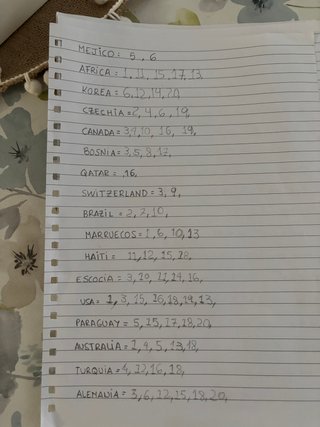 MEJICO = 5, 6
AFRICA = 1, 11, 15, 17, 13,
KOREA = 6, 12, 19, 20
CZECHIA = 2, 4, 6, 19,
CANADA = 3, 9, 10, 16, 19,
BOSNIA = 3, 5, 8, 12,
QATAR = 16,
SWITZERLAND = 3, 9,
BRAZIL = 2, 7, 10,
MARRUECOS = 1, 6, 10, 13
HAITI = 11, 12, 15, 18,
ESCOCIA = 3, 20, 11, 14, 16,
USA = 1, 3, 15, 16, 18, 19, 13,
PARAGUAY = 5, 15, 17, 18, 20,
AUSTRALIA = 1, 4, 5, 13, 18,
TURQUIA = 4, 12, 16, 18,
ALEMANIA = 3, 6, 12, 15, 18, 20,